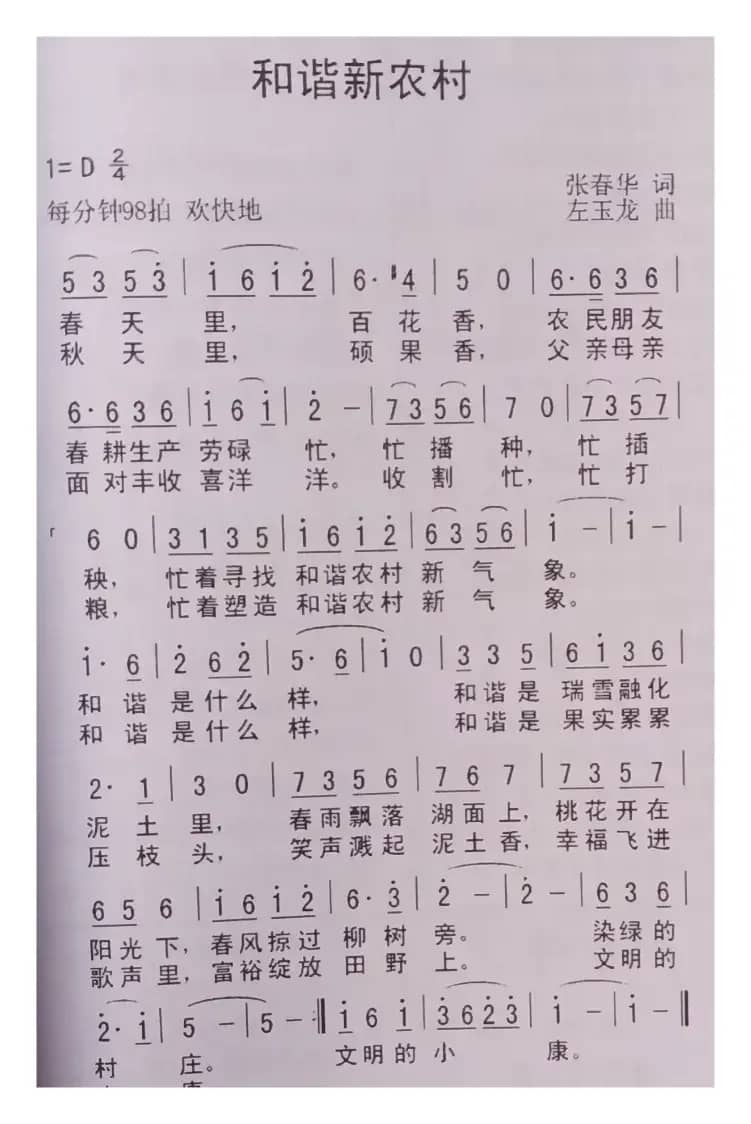 和谐新农村
1=D 2/4
张春华 词
每分钟98拍 欢快地
左玉龙 曲
5 3 5 3̇ | 1̇ 6 1̇ 2̇ | 6· #4 | 5 0 | 6· 6 3 6 |
春 天 里, 百 花 香, 农 民 朋 友
秋 天 里, 硕 果 香, 父 亲 母 亲
6· 6 3 6 | 1̇ 6 1̇ | 2̇ － | 7 3 5 6 | 7 0 | 7 3 5 7 |
春 耕 生 产 劳 碌 忙, 忙 播 种, 忙 插
面 对 丰 收 喜 洋 洋。 收 割 忙, 忙 打
6 0 | 3 1 3 5 | 1̇ 6 1̇ 2̇ | 6 3 5 6 | 1̇ － | 1̇ － |
秧, 忙 着 寻 找 和 谐 农 村 新 气 象。
粮, 忙 着 塑 造 和 谐 农 村 新 气 象。
1̇· 6 | 2̇ 6 2̇ | 5· 6 | 1̇ 0 | 3 3 5 | 6 1̇ 3 6 |
和 谐 是 什 么 样, 和 谐 是 瑞 雪 融 化
和 谐 是 什 么 样, 和 谐 是 果 实 累 累
2· 1 | 3 0 | 7 3 5 6 | 7 6 7 | 7 3 5 7 |
泥 土 里, 春 雨 飘 落 湖 面 上, 桃 花 开 在
压 枝 头, 笑 声 溅 起 泥 土 香, 幸 福 飞 进
6 5 6 | 1̇ 6 1̇ 2̇ | 6· 3̇ | 2̇ － | 2̇ － | 6 3 6 |
阳 光 下, 春 风 掠 过 柳 树 旁。 染 绿 的
歌 声 里, 富 裕 绽 放 田 野 上。 文 明 的
2̇· 1̇ | 5 － | 5 － :‖ 1̇ 6 1̇ | 3̇ 6 2̇ 3̇ | 1̇ － | 1̇ － ‖
村 庄。 文 明 的 小 康。